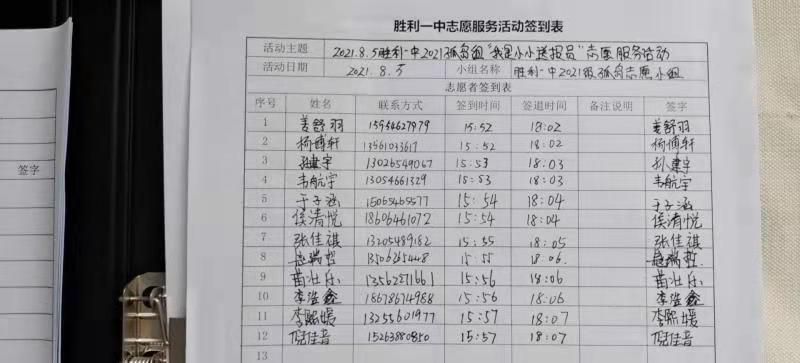 胜利一中志愿服务活动签到表
活动主题 2021.8.5胜利一中2021孤岛组“我是小小送报员”志愿服务活动
活动日期 2021.8.5 小组名称 胜利一中2021级孤岛志愿小组
志愿者签到表
序号 姓名 联系方式 签到时间 签退时间 备注说明 签字
1 姜舒羽 15954627979 15:52 18:02 姜舒羽
2 杨博轩 13561033617 15:52 18:02 杨博轩
3 孙建宇 13026549067 15:53 18:03 孙建宇
4 韦航宇 13054661329 15:53 18:03 韦航宇
5 于子涵 15065465577 15:54 18:04 于子涵
6 侯清悦 18606461072 15:54 18:04 侯清悦
7 张佳祺 13205489182 15:55 18:05 张佳祺
8 赵瑞哲 13506265448 15:55 18:06 赵瑞哲
9 苗壮乐 13562871661 15:56 18:06 苗壮乐
10 李浩鑫 18678674988 15:56 18:06 李浩鑫
11 李熙媛 13255601977 15:57 18:07 李熙媛
12 倪佳音 15263880850 15:57 18:07 倪佳音
13
签字